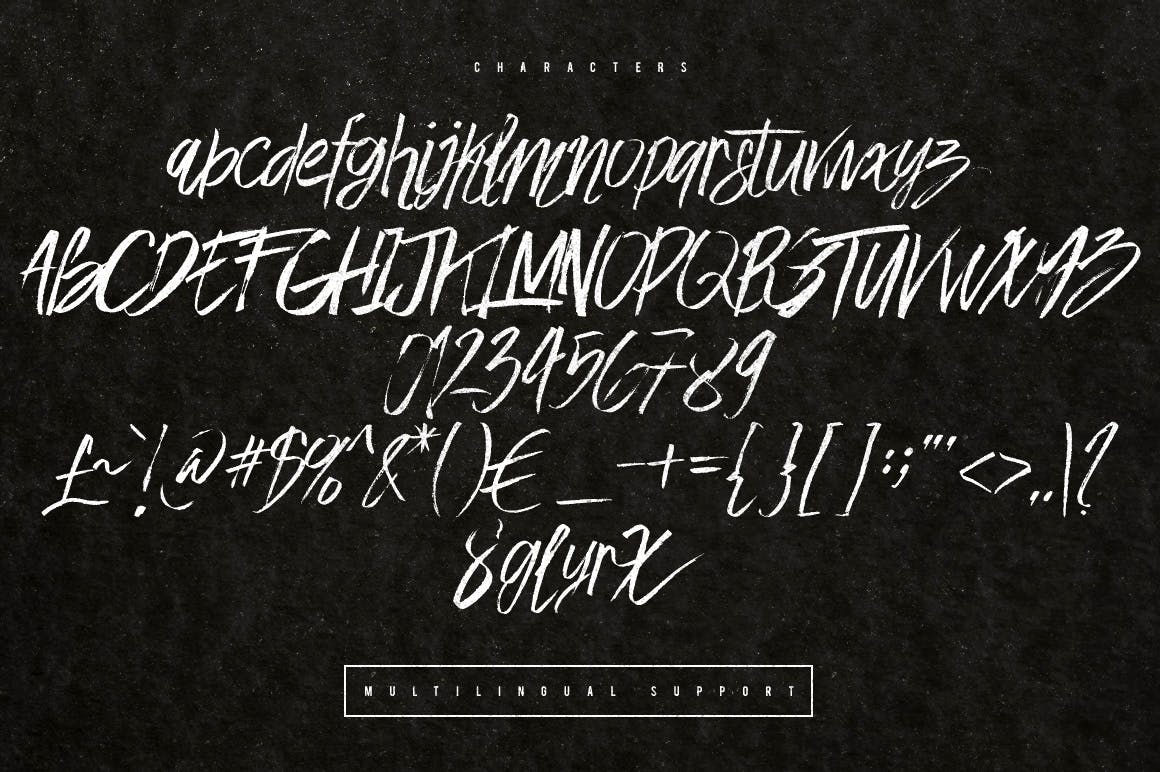 CHARACTERS
abcdefghijklmnopqrstuvwxyz
ABCDEFGHIJKLMNOPQRSTUVWXYZ
0123456789
£~`!@#$%^&*()€_ +={}[]:;"'<>,.|?
8glyrX
MULTILINGUAL SUPPORT